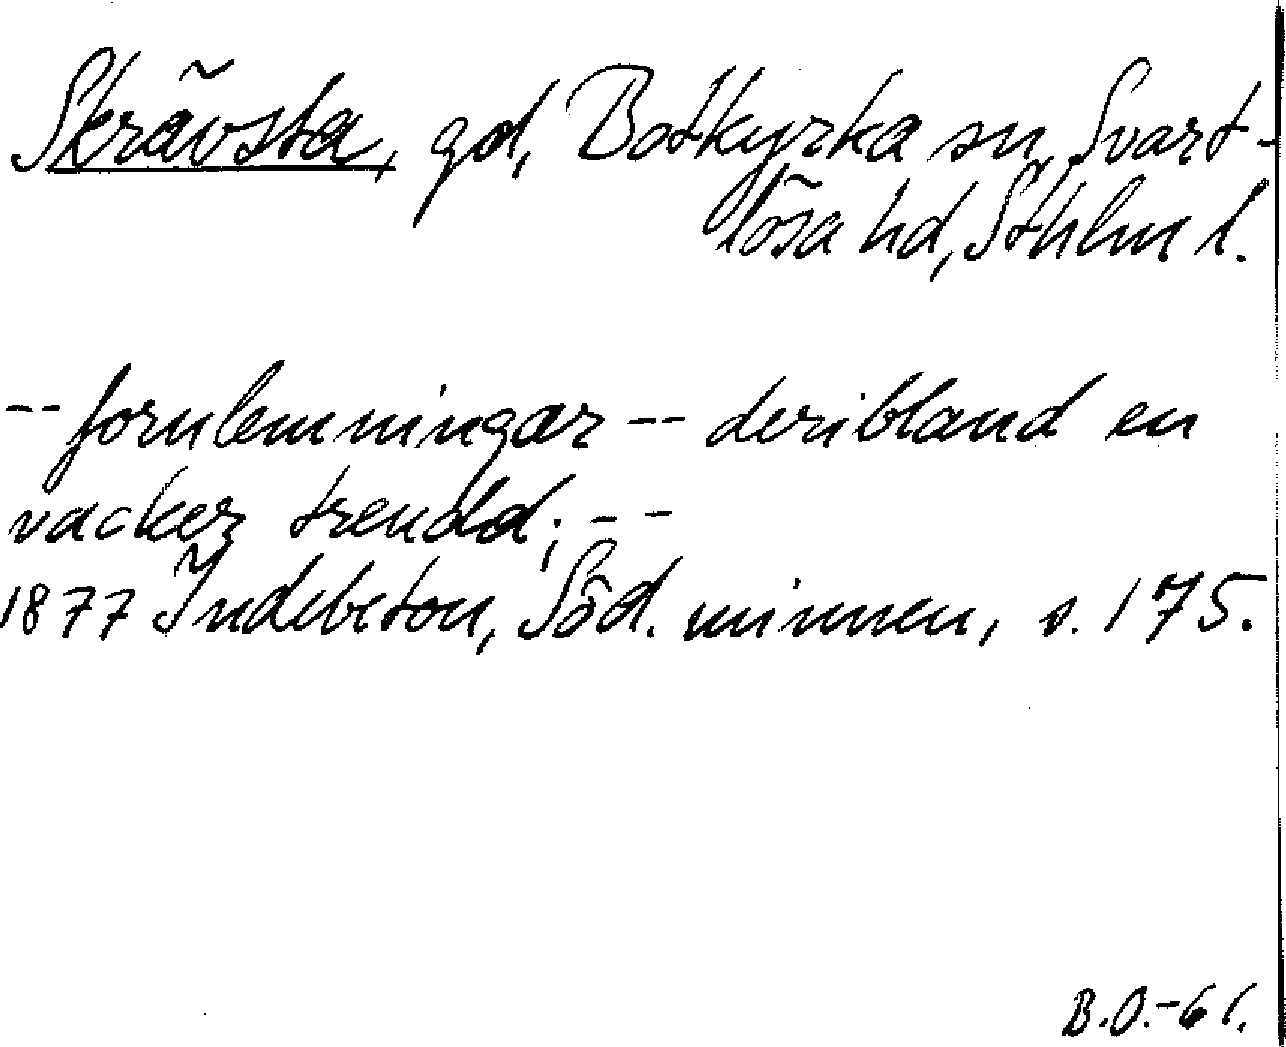 Skrävsta, gd, Botkyrka sn, Svart-
lösa hd, Sthlm l.
-- fornlemningar -- deribland en
vacker treudd; --
1877 Indebetou, Söd. minnen, s. 175.
B.O.-61.